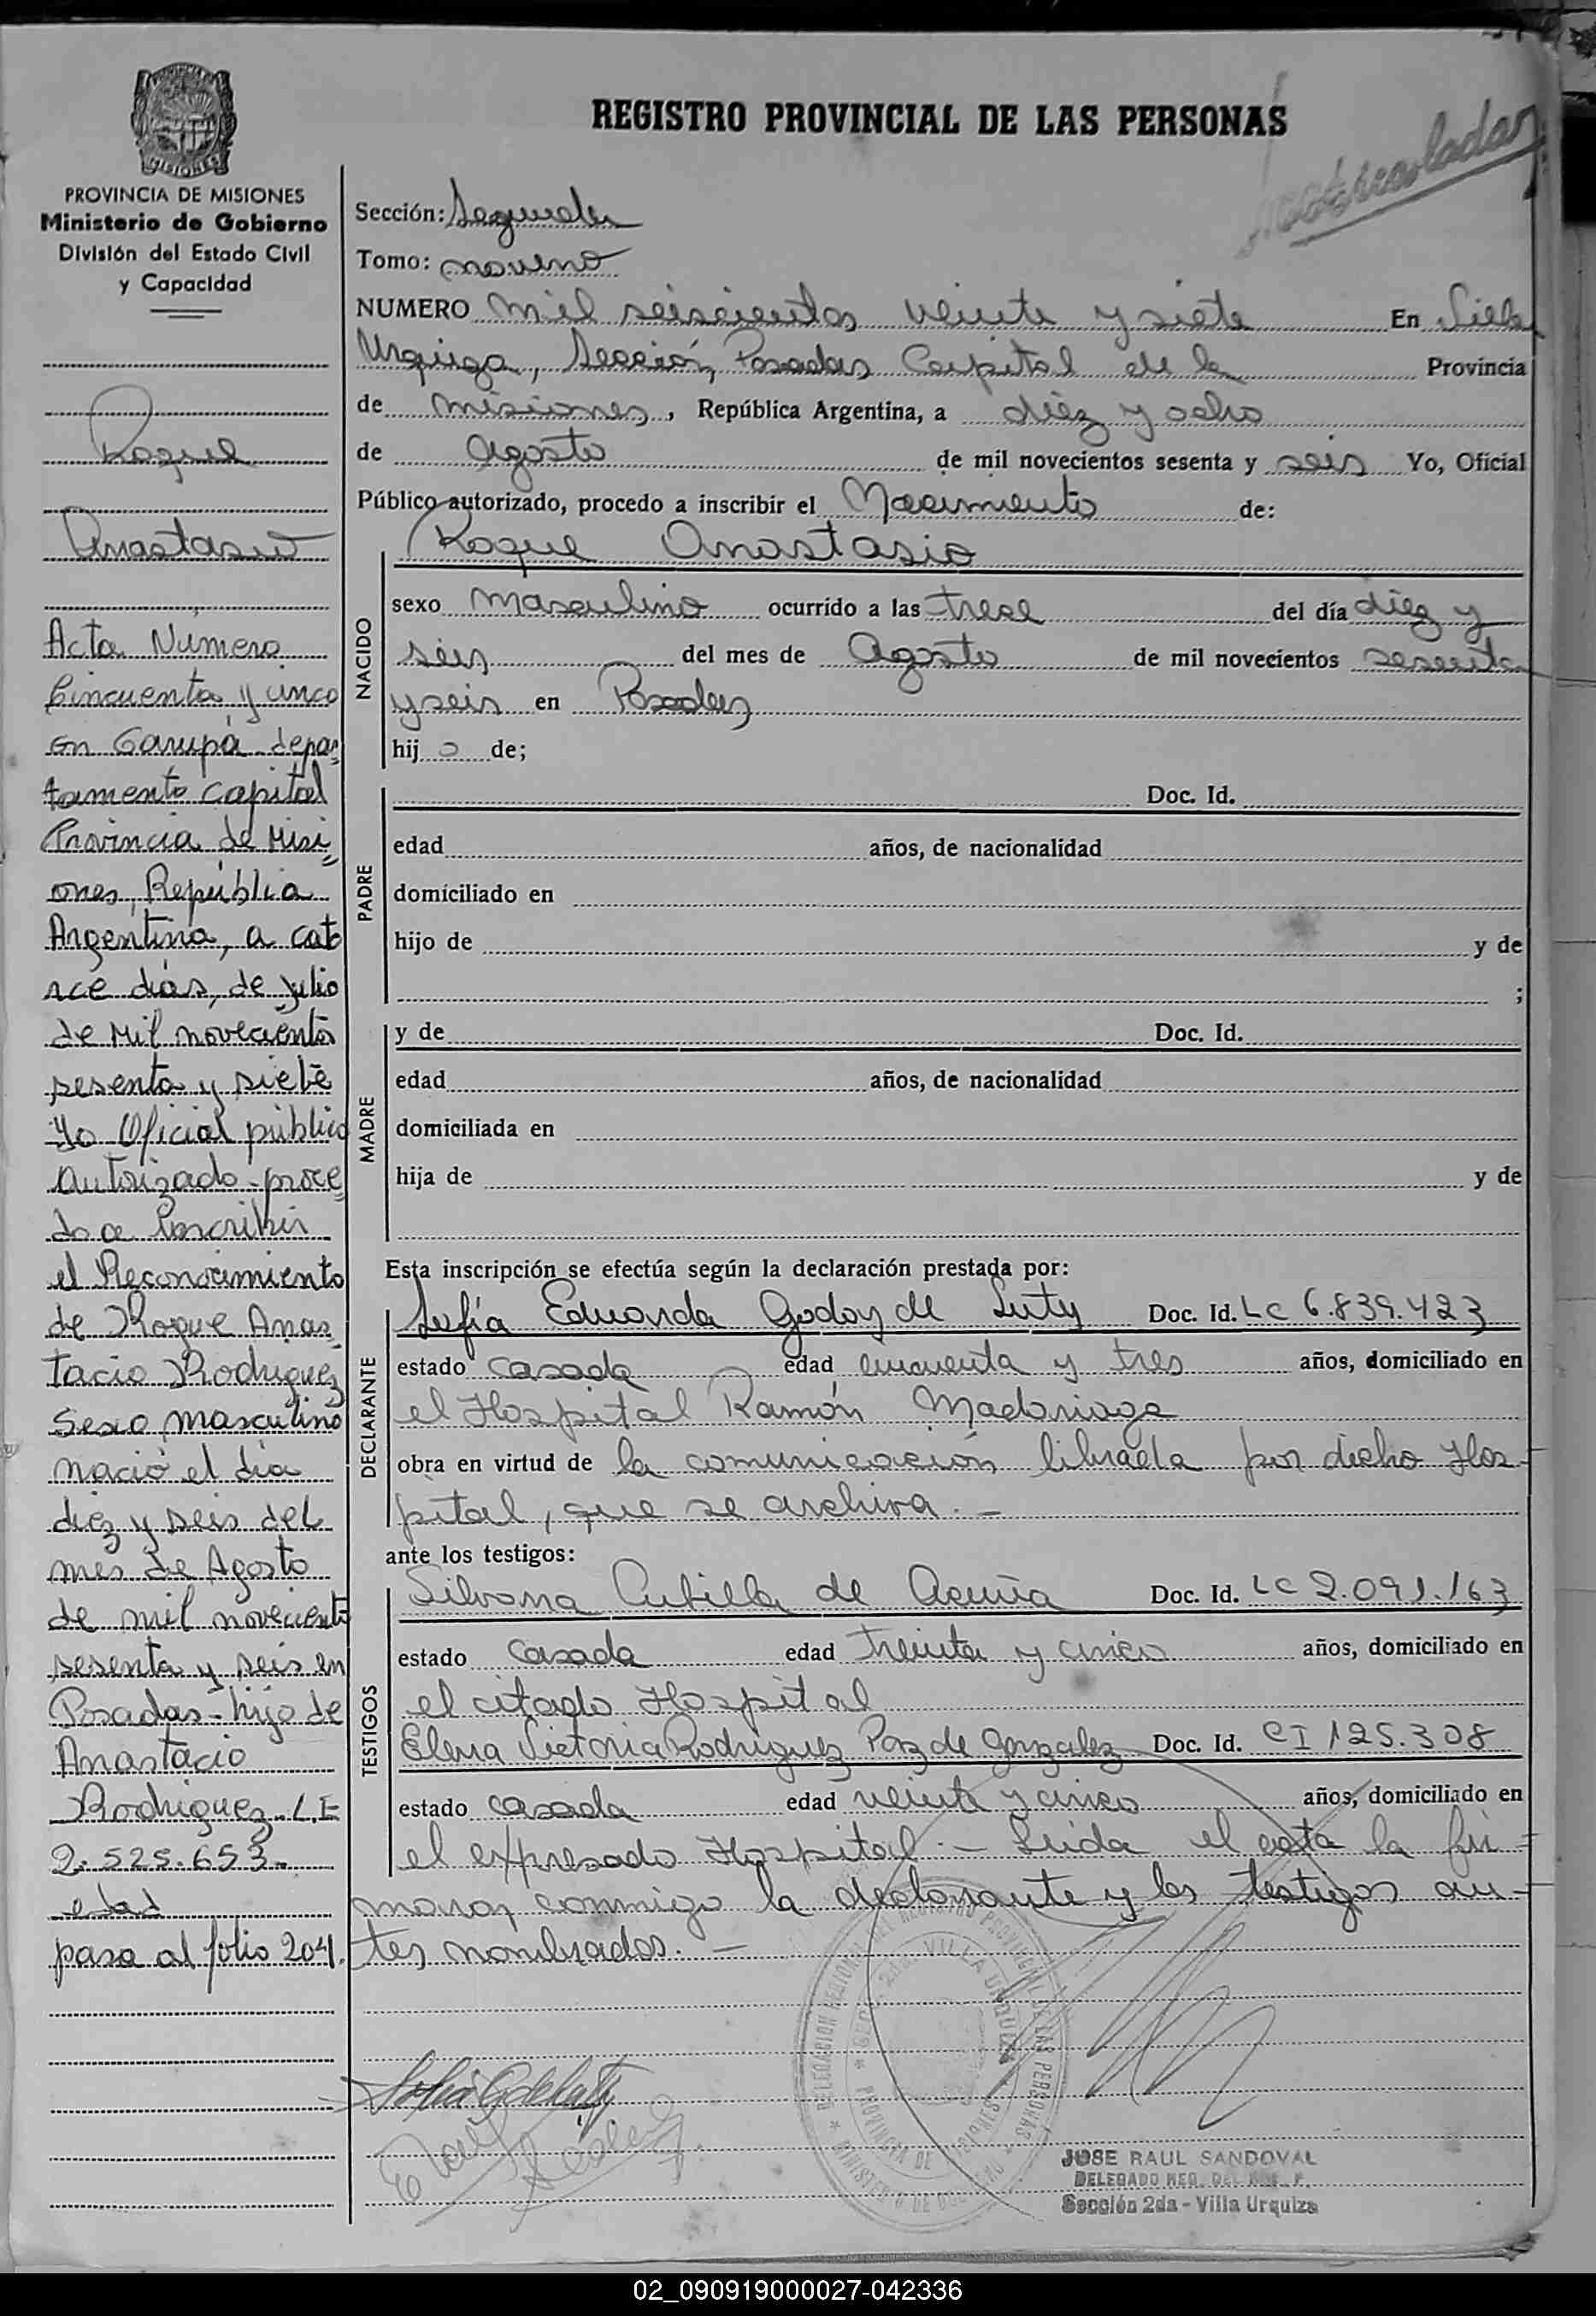 REGISTRO PROVINCIAL DE LAS PERSONAS
MISIONES
PROVINCIA DE MISIONES
Ministerio de Gobierno
División del Estado Civil
y Capacidad
Roque
Anastasio
Acta Número
Cincuenta y cinco
En Garupá depar
tamento Capital
Provincia de Misi
ones, República
Argentina, a cato
rce dias, de julio
de Mil novecientos
sesenta y siete
Yo Oficial público
Autorizado proce
do a Inscribir
el Reconocimiento
de Roque Anas
tacio Rodriguez
Sexo masculino
nació el dia
diez y seis del
mes de Agosto
de mil noveciento
sesenta y seis en
Posadas - hijo de
Anastacio
Rodriguez. L.E
2.525.653.
edad
pasa al folio 204.
Sección: Segunda
Tomo: noveno
NUMERO mil seiscientos veinte y siete En Villa
Urquiza, Sección Posadas Capital de la Provincia
de misiones, República Argentina, a diez y ocho
de Agosto de mil novecientos sesenta y seis Yo, Oficial
Público autorizado, procedo a inscribir el Nacimiento de:
NACIDO
Roque Anastasio
sexo masculino ocurrido a las trece del día diez y
seis del mes de Agosto de mil novecientos sesenta
y seis en Posadas
hij o de;
PADRE
Doc. Id.
edad años, de nacionalidad
domiciliado en
hijo de y de
;
MADRE
y de Doc. Id.
edad años, de nacionalidad
domiciliada en
hija de y de
Esta inscripción se efectúa según la declaración prestada por:
DECLARANTE
Sofía Eduarda Godoy de Luty Doc. Id. LC 6.839.423
estado casada edad cincuenta y tres años, domiciliado en
el Hospital Ramón Madariaga
obra en virtud de la comunicación librada por dicho Hos-
pital, que se archiva. -
ante los testigos:
TESTIGOS
Silvana Cubilla de Acuña Doc. Id. LC 2.091.163
estado casada edad treinta y cinco años, domiciliado en
el citado Hospital
Elena Victoria Rodriguez Paz de Gonzalez Doc. Id. CI 125.308
estado casada edad veinte y cinco años, domiciliado en
el expresado Hospital - Leida el acta la fir=
maron conmigo la declarante y los testigos an-
tes nombrados. -
JOSE RAUL SANDOVAL
DELEGADO REG.
Sección 2da - Villa Urquiza
02_090919000027-042336